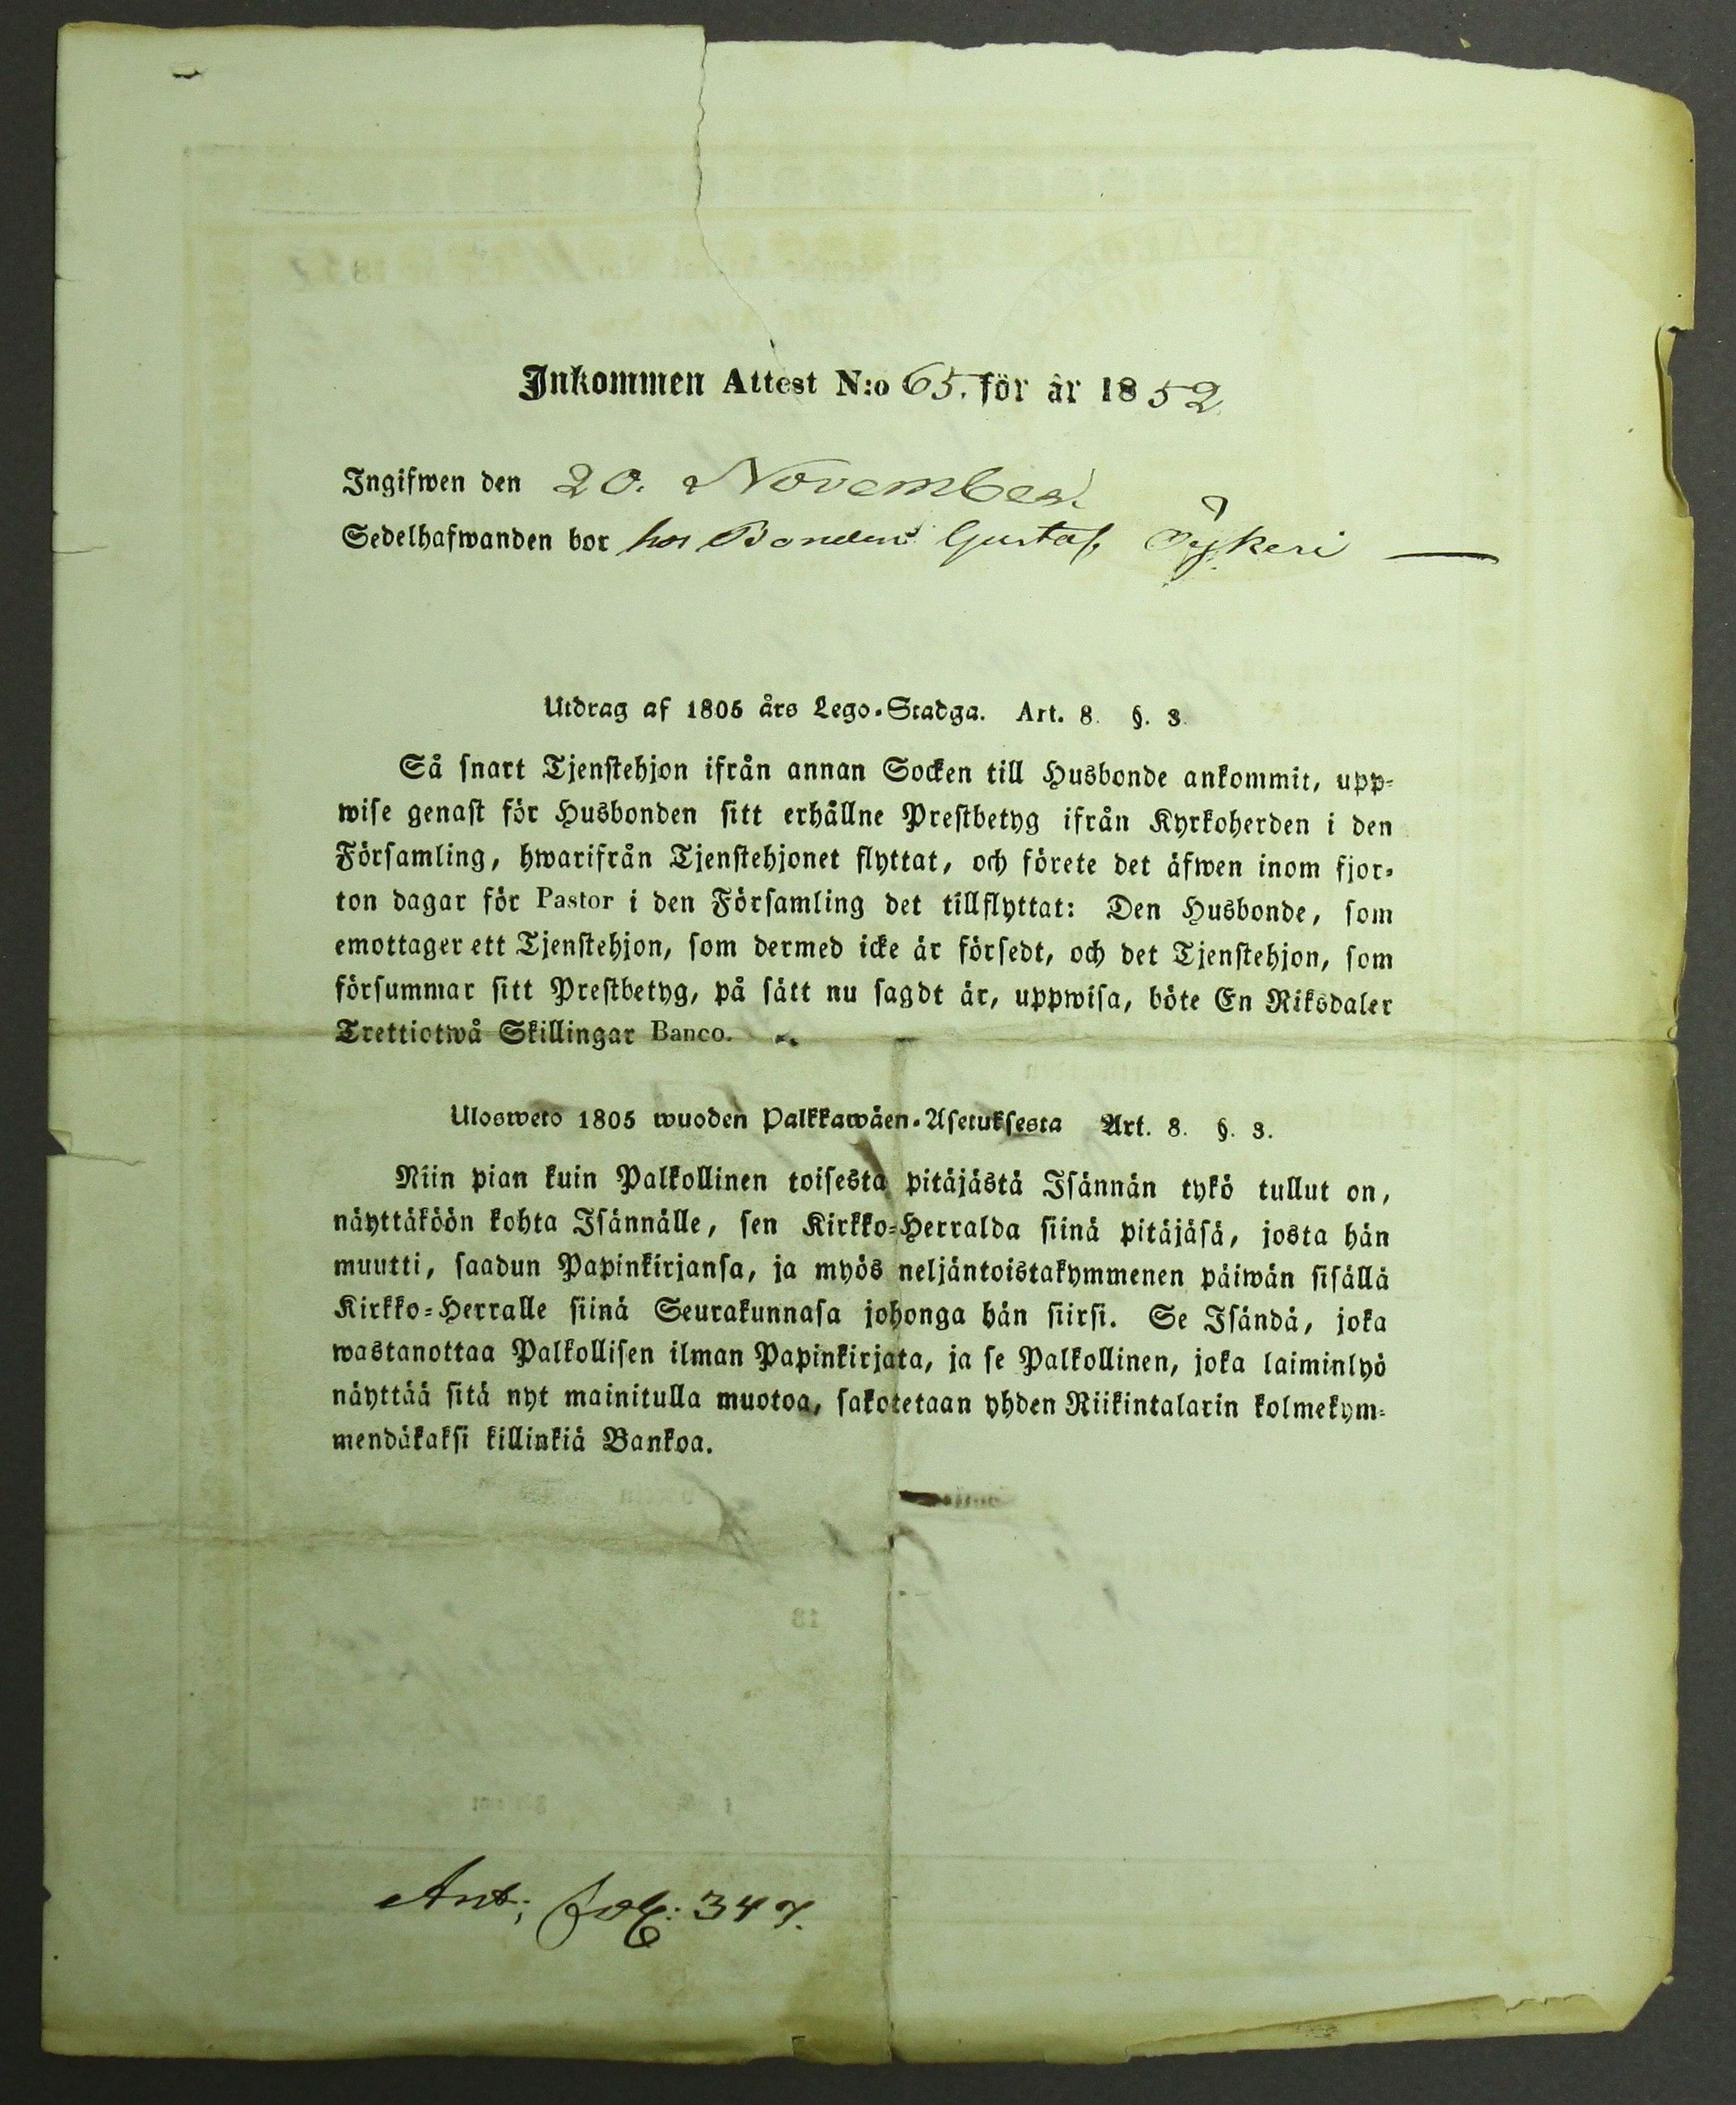 Inkommen Attest N:o 65. för år 1852
Ingifwen den 20. November.
Sedelhafwanden bor hos Bonden Gustaf
Utdrag af 1805 års Lego-Stadga. Art. 8. §. 3.
Så snart Tjenstehjon ifrån annan Socken till Husbonde ankommit, upp-
wise genast för Husbonden sitt erhållne Prestbetyg ifrån Kyrkoherden i den
Församling, hwarifrån Tjenstehjonet flyttat, och förete det äfwen inom fjor-
ton dagar för Pastor i den Församling det tillflyttat: Den Husbonde, som
emottager ett Tjenstehjon, som dermed icke är försedt, och det Tjenstehjon, som
försummar sitt Prestbetyg, på sätt nu sagdt är, uppwisa, böte En Riksdaler
Trettiotwå Skillingar Banco.
Ulosweto 1805 wuoden Palkkawäen-Asetuksesta Art. 8. §. 3.
Niin pian kuin Palkollinen toisesta pitäjästä Isännän tykö tullut on,
näyttäköön kohta Isännälle, sen Kirkko-Herralda siinä pitäjäsä, josta hän
muutti, saadun Papinkirjansa, ja myös neljäntoistakymmenen päiwän sisällä
Kirkko-Herralle siinä Seurakunnasa johonga hän siirsi. Se Isändä, joka
wastanottaa Palkollisen ilman Papinkirjata, ja se Palkollinen, joka laiminlyö
näyttää sitä nyt mainitulla muotoa, sakotetaan yhden Riikintalarin kolmekym-
mendäkaksi killinkiä Bankoa.
Ant; fol: 347.